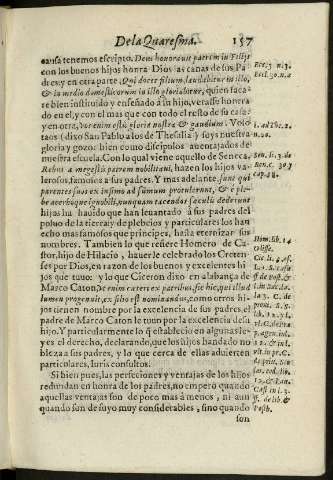 De la Quaresma. 157
causa tenemos escripto. Deus honorauit patrem in Filijs
con los buenos hijos honra Dios las canas de sus Pa
dres: y en otra parte, Qui docet filium, laudabitur in illo,
& in medio domesticorum in illo gloriabitur, quien saca-
re bien instituido y enseñado a su hijo, verasse honra
do en el, y con el mas que con todo el resto de su casa:
y en otra, vos enim estis gloria nostra & gaudium: Vos
taos (dixo San Pablo a los de Thesalia) soys nuestra
gloria y gozo: bien como discipulos auentajados de
nuestra escuela. Con lo qual viene aquello de Seneca,
patrem nobilitant, hazen los hijos va-
lerosos, famosos a sus padres. Y mas adelante, sunt qui
parentes suos ex infimo ad summum protulerunt, & è ple
be acerboque ignobili, nunquam tacendas
hijas ha hauido que han leuantado à sus padres del
poluo de la tierra: y de plebeyos y particulares los han
echo mas famosos que principes, hasta eternizar sus
nombres. Tambien lo que refiere Homero de Ca-
stor, hijo de Hilacio, hauerle celebrado los Creten-
ses por Dios, en razon de los buenos y excelentes hi
jos que tuuo: y lo que Ciceron dixo en alabança de
Marco Caton, ceteri ex patribus, sic hic, qui illud
lumen progenuit, ex filio est nominandus, como otros hi-
jos tienen nombre por la excelencia de sus padres, el
padre de Marco Caton le tuuo por la excelencia de su
hijo. Y particularmente lo q̃ establecio en algunas le-
yes el derecho, declarando, que los hijos han dado no
bleza a sus padres, y lo que cerca de ellas aduierten
particulares, Iuris consultos.
Si bien pues, las perfecciones y ventajas de los hijos
redundan en honra de los padres, no empero quando
aquellas ventajas son de poco mas à menos, ni aun
quando son de suyo muy considerables, sino quando
son
Ecc. 3. n. 3.
Eccl. 30. n. 2
1. ad Thc. 2.
n. 20.
Sen. li. 3. de
ben. c. 32. y
cap. 38.
Hom. lib. 14